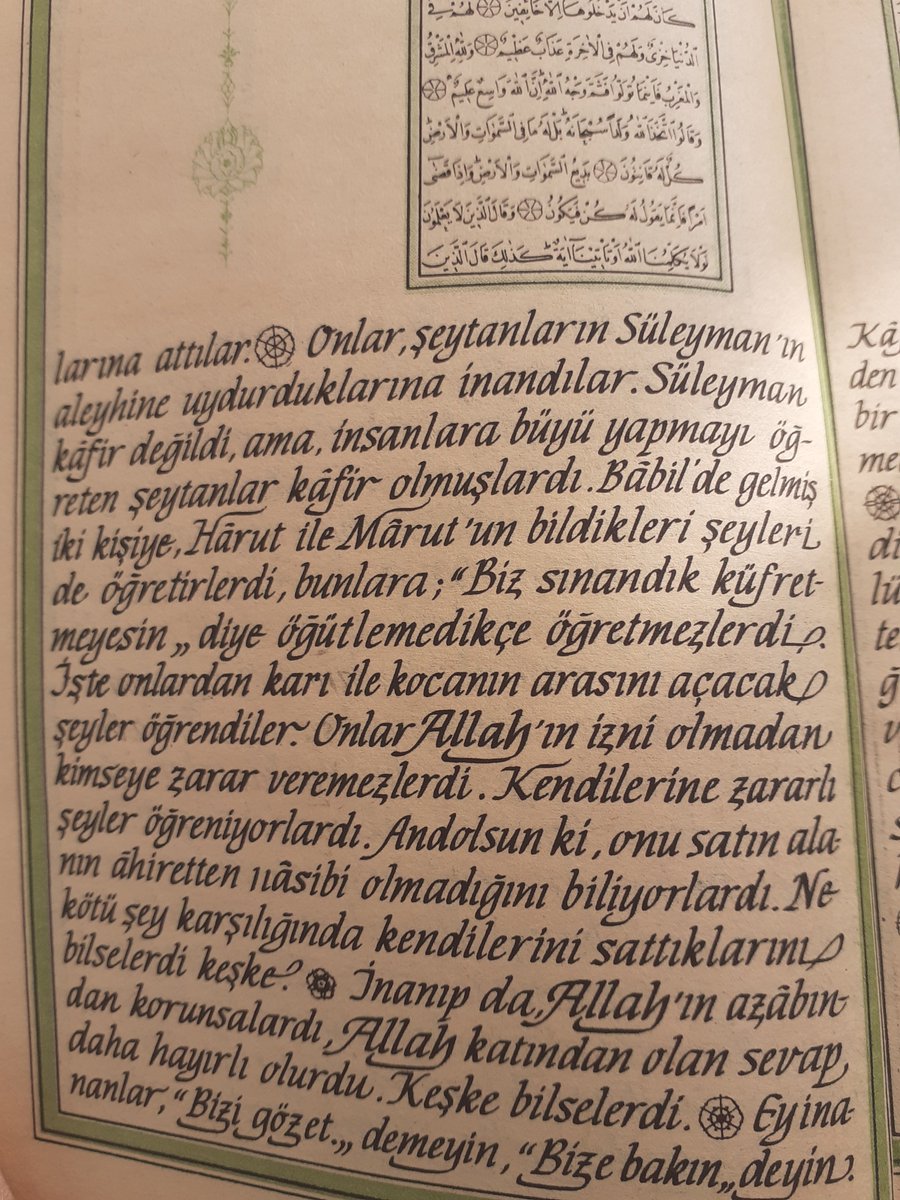 كَانَ لَهُمْ اَنْ يَدْخُلُوهَٓا اِلَّا خَٓائِفٖينَ لَهُمْ فِي
الدُّنْيَا خِزْيٌ وَلَهُمْ فِي الْاٰخِرَةِ عَذَابٌ عَظٖيمٌ وَلِلّٰهِ الْمَشْرِقُ
وَالْمَغْرِبُ فَاَيْنَمَا تُوَلُّوا فَثَمَّ وَجْهُ اللّٰهِ اِنَّ اللّٰهَ وَاسِعٌ عَلٖيمٌ
وَقَالُوا اتَّخَذَ اللّٰهُ وَلَدًا سُبْحَانَهُ بَلْ لَهُ مَا فِي السَّمٰوَاتِ وَالْاَرْضِ
كُلٌّ لَهُ قَانِتُونَ بَدٖيعُ السَّمٰوَاتِ وَالْاَرْضِ وَاِذَا قَضٰٓى
اَمْرًا فَاِنَّمَا يَقُولُ لَهُ كُنْ فَيَكُونُ وَقَالَ الَّذٖينَ لَا يَعْلَمُونَ
لَوْلَا يُكَلِّمُنَا اللّٰهُ اَوْ تَأْتٖينَٓا اٰيَةٌ كَذٰلِكَ قَالَ الَّذٖينَ
larına attılar. Onlar, şeytanların Süleyman'ın
aleyhine uydurduklarına inandılar. Süleyman
kâfir değildi, ama, insanlara büyü yapmayı öğ-
reten şeytanlar kâfir olmuşlardı. Bâbil'de gelmiş
iki kişiye, Hârut ile Mârut'un bildikleri şeyleri
de öğretirlerdi, bunlara; “Biz sınandık küfret-
meyesin„ diye öğütlemedikçe öğretmezlerdi.
İşte onlardan karı ile kocanın arasını açacak
şeyler öğrendiler. Onlar Allah'ın izni olmadan
kimseye zarar veremezlerdi. Kendilerine zararlı
şeyler öğreniyorlardı. Andolsun ki, onu satın ala-
nın âhiretten nâsibi olmadığını biliyorlardı. Ne
kötü şey karşılığında kendilerini sattıklarını
bilselerdi keşke? İnanıp da, Allah'ın azâbın-
dan korunsalardı, Allah katından olan sevap,
daha hayırlı olurdu. Keşke bilselerdi. Ey ina-
nanlar, “Bizi gözet.„ demeyin, “Bize bakın„ deyin.
Kâ
den
bir
me
di
lü
te
ğ